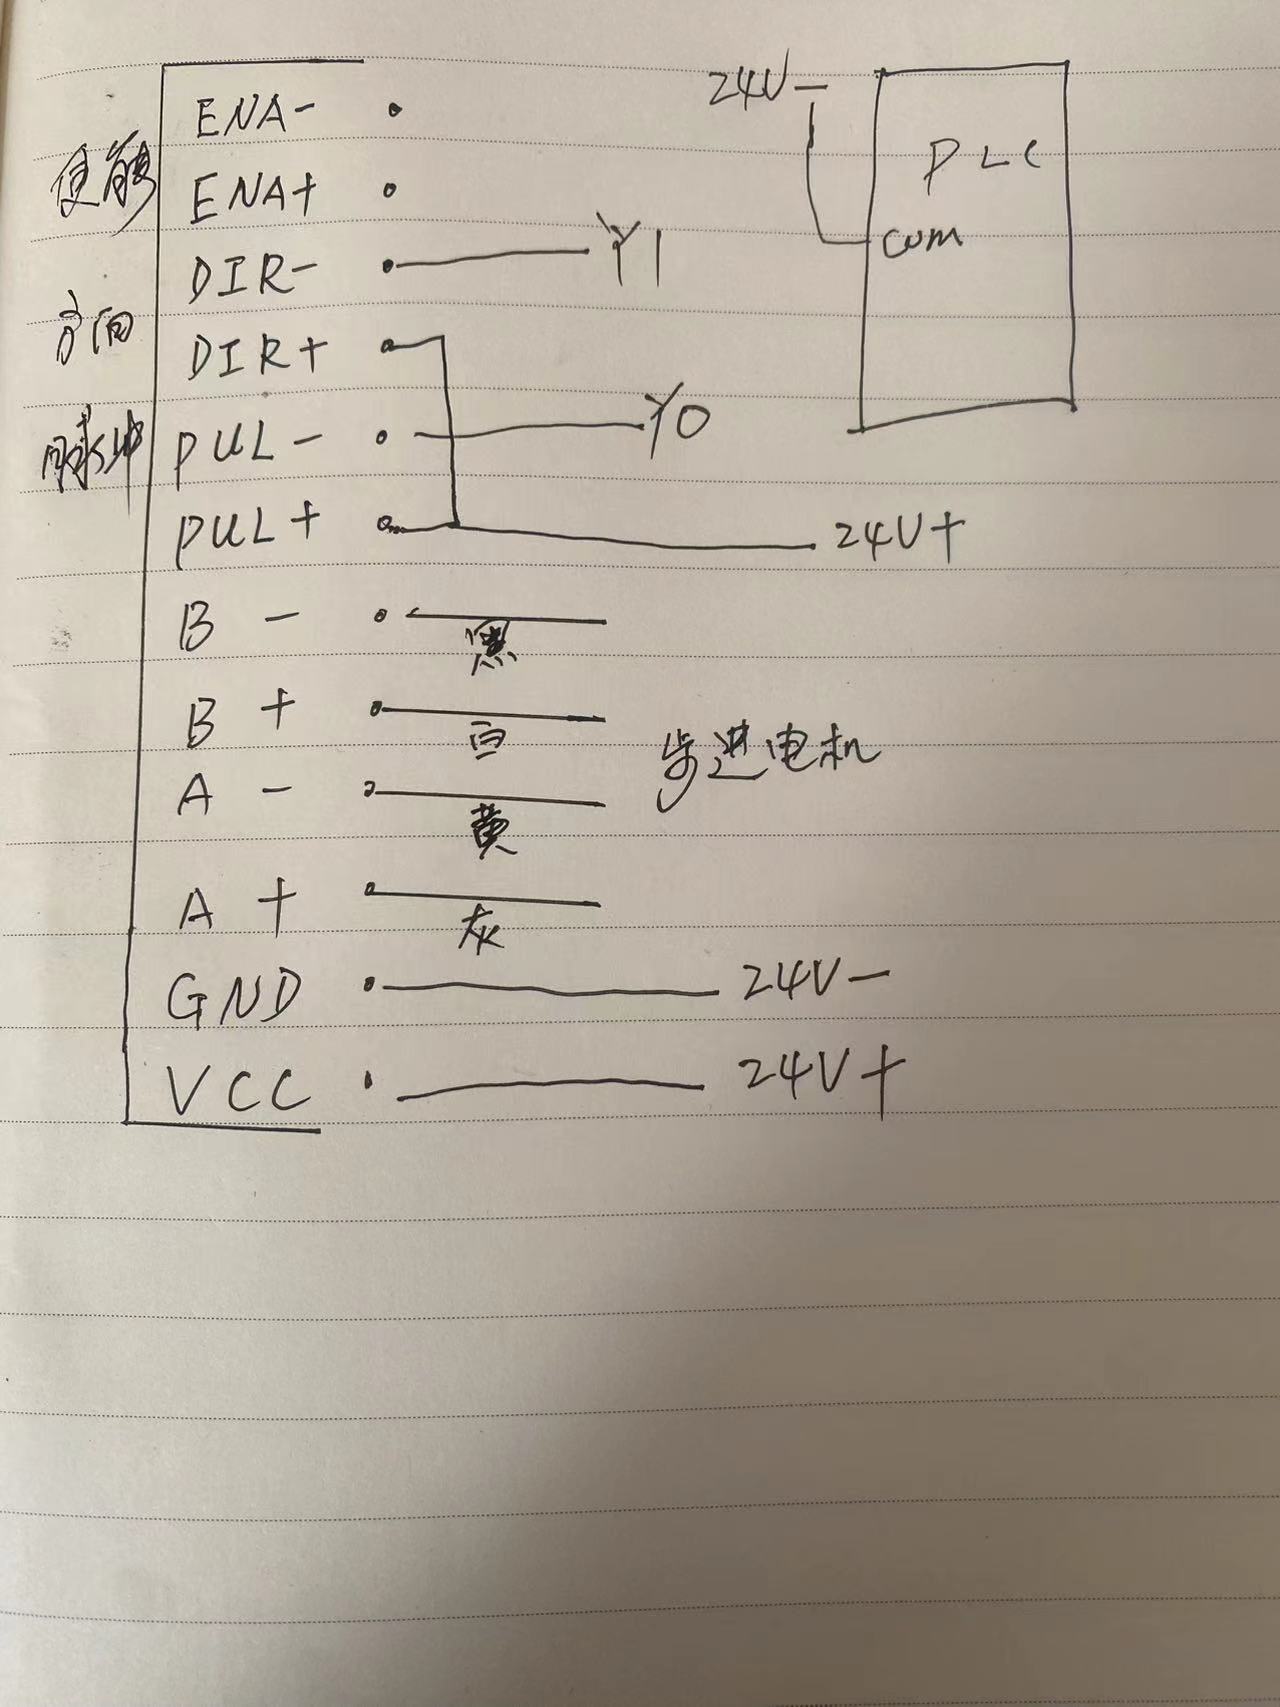 24V-
PLC
com
使能
ENA-
ENA+
DIR- Y1
方向
DIR+
脉冲
PUL- Y0
PUL+ 24V+
B -
黑
B +
白
步进电机
A -
黄
A +
灰
GND 24V-
VCC 24V+